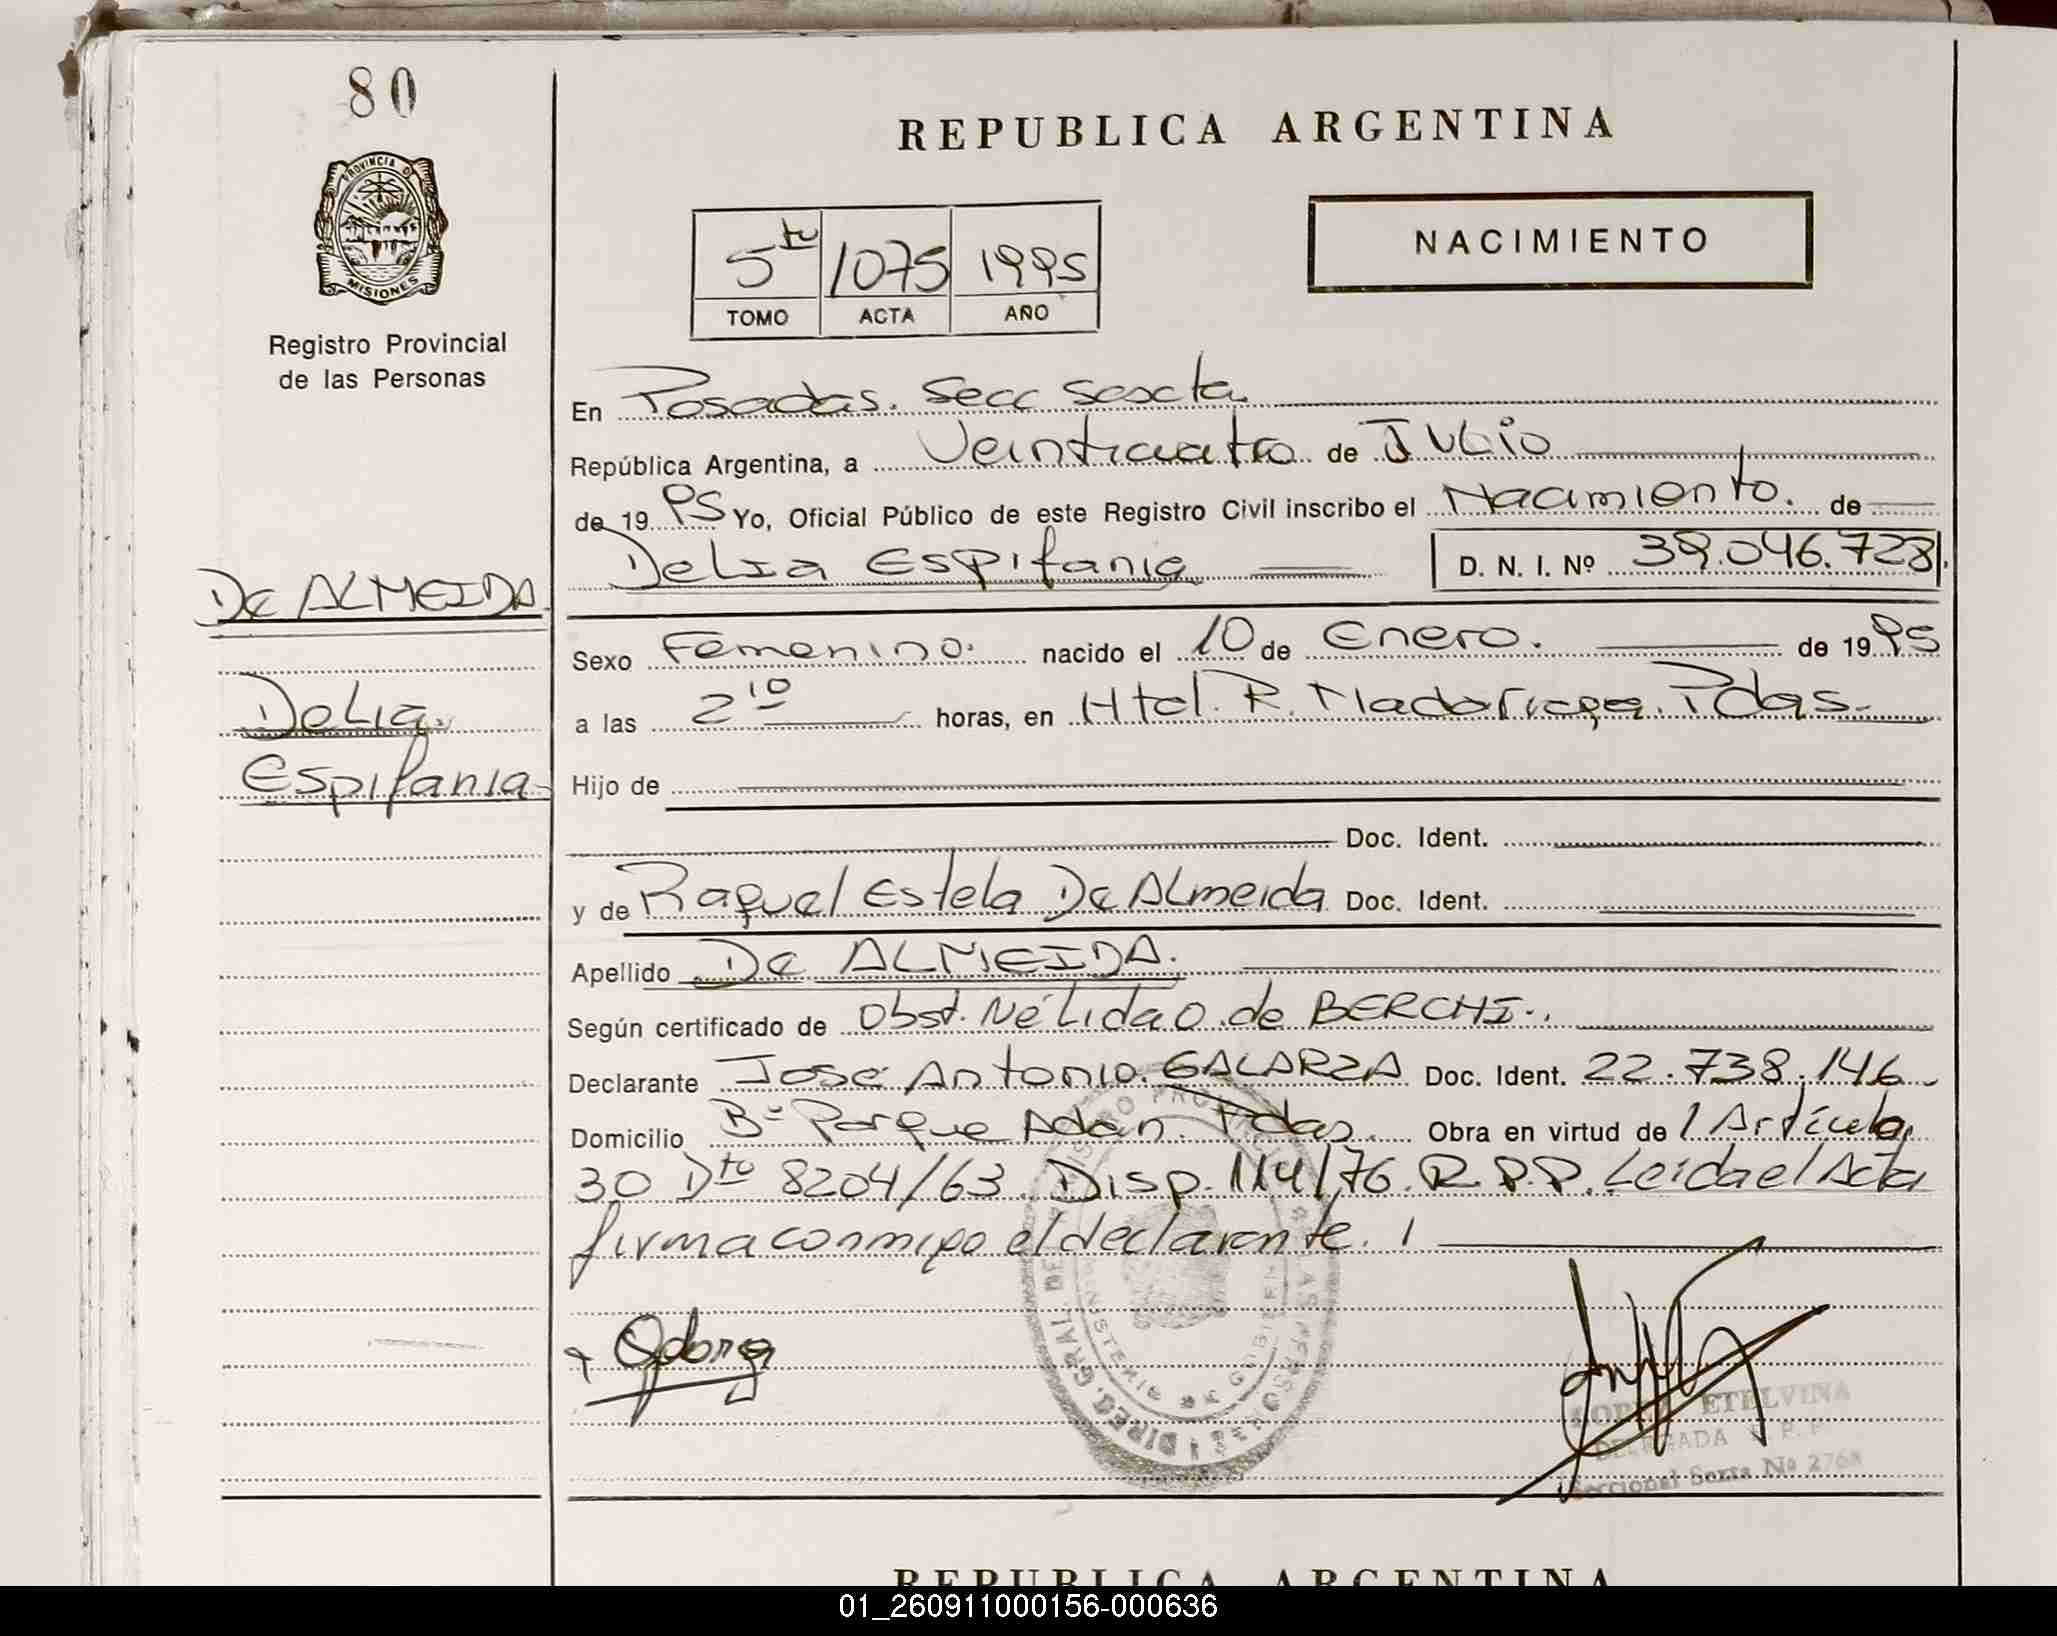 80
PROVINCIA DE
MISIONES
Registro Provincial
de las Personas
De ALMEIDA
Delia
Espifania
REPUBLICA ARGENTINA
NACIMIENTO
5to 1075 1995
TOMO ACTA AÑO
En Posadas. Secc Sexcta
República Argentina, a Veinticuatro de Julio
de 1995 Yo, Oficial Público de este Registro Civil inscribo el Nacimiento. de
Delia Espifania D. N. I. Nº 39.046.728
Sexo Femenino. nacido el 10 de Enero. de 1995
a las 2 10 horas, en Htal. R. Madariaga. Pdas.
Hijo de
Doc. Ident.
y de Raquel Estela De Almeida Doc. Ident.
Apellido De ALMEIDA.
Según certificado de Obst. Nélida O. de BERCHI..
Declarante José Antonio. GALARZA Doc. Ident. 22.738.146
Domicilio Bº Parque Adan. Pdas. Obra en virtud de / Artículo
30 Dto 8204/63. Disp. 114/76. R.P.P. Leida el Acta
firma conmigo el declarante. /
ETELVINA
DELEGADA R. P. P.
Seccional Sexta Nº 2768
REPUBLICA ARGENTINA
01_260911000156-000636